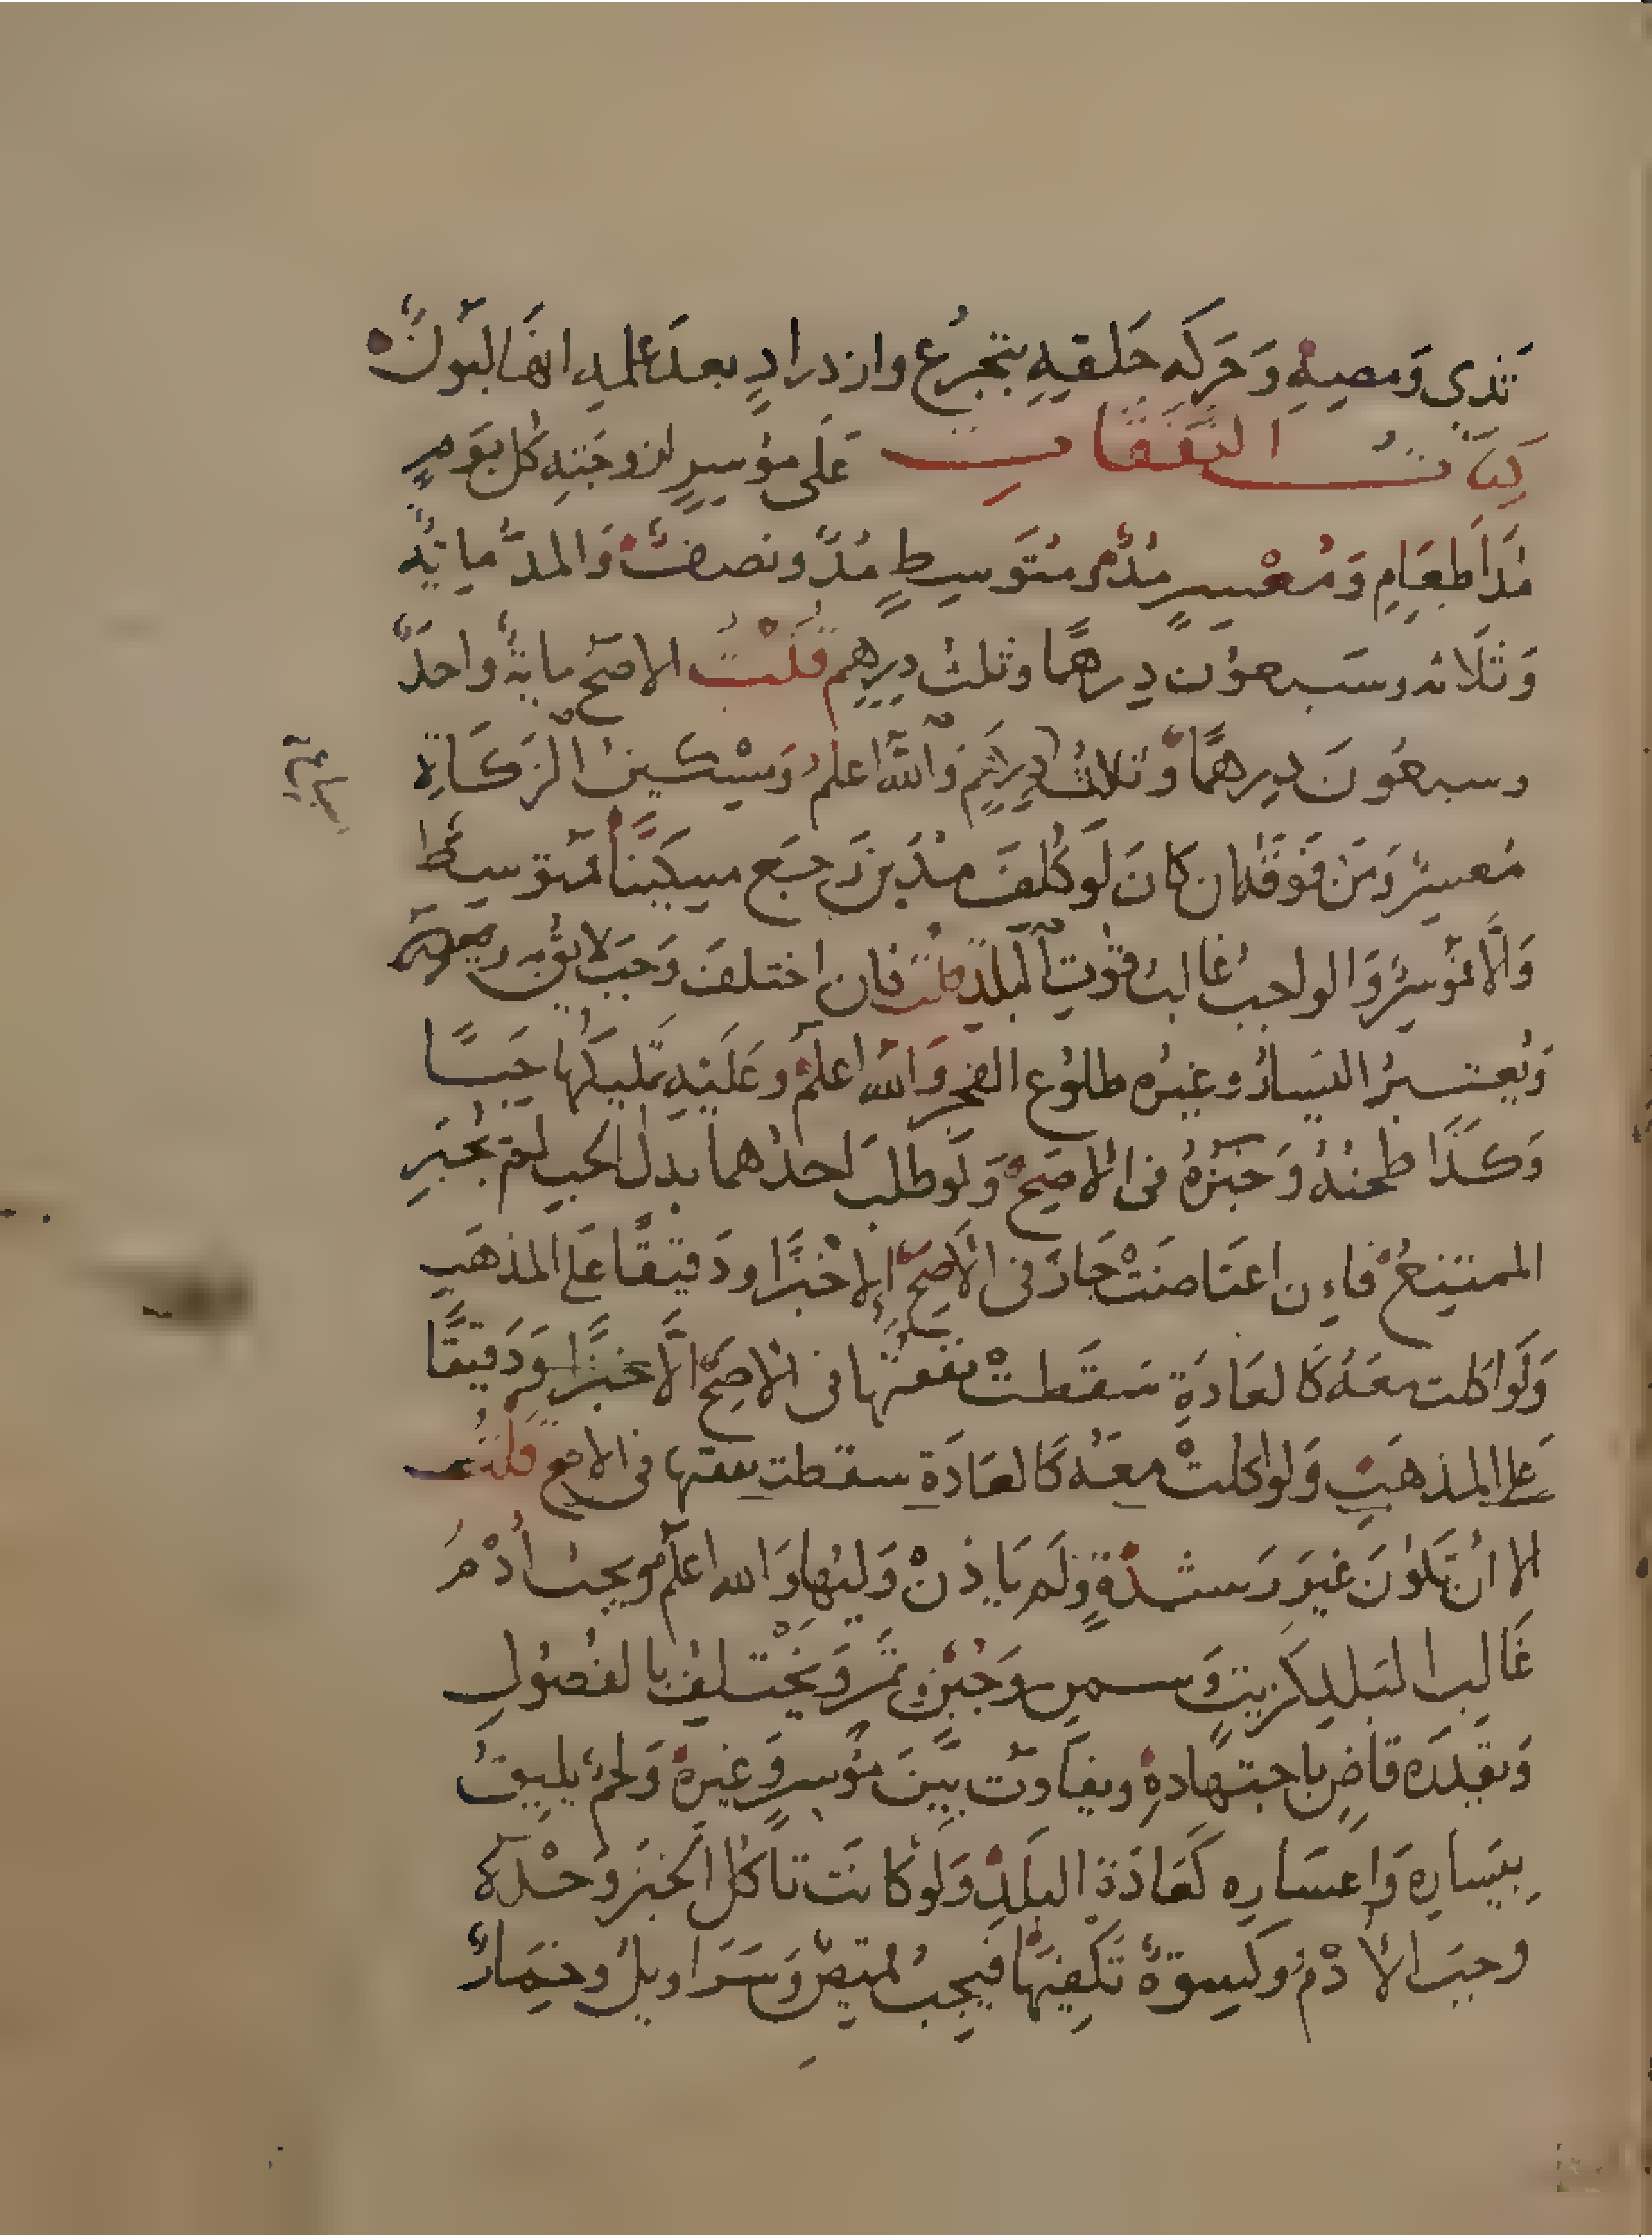 ثَدِي وَمصِهِ وَحَركَةِ حَلقهِ بتجَرُع وازدرادٍ بعدَ علمهِ انهَا لبَونٌ
كِتَابُ النَفَقَاتِ عَلَى مؤسِرٍ لزوجَتهِ كُل يَومٍ
مُدَا طَعَامٍ وَمُعْسِرٍ مُدٌّ ومتَوَسِطٍ مُدٌّ ونصفٌ وَالمدُّ مايَةٌ
وَثلَاثه وسَبعوُن دِرهمًا وثلثُ دِرهمٍ قُلْتُ الاصَح مايةٌ واحدٌ
وسبعُونَ دِرهمًا وثلاثة اسباع دِرهَمٍ وَاللهُ اعلمُ وَمِسْكينُ الزَكَاةِ
مُعسِرٌ وَمَن فَوقهُ ان كَانَ لَو كُلفَ مُدَين رَجَعَ مِسكِينًا فمتوَسِطٌ
وَالَّا فمُوسِرٌ وَالواجبُ غَالبُ قوُتِ البلدِ قلت فان اختلفَ وَجَبَ لايقٌ به
وَيُعتبرُ اليَسَارُ وغيرُه طلوُع الفجرِ وَاللهُ اعلمُ وعَلَيْهِ تمليكُها حَبًا
وَكذَا طحنُهُ وَخبزُهُ فى الاصَحِ وَلَو طلبَ احدُهما بدلَ الحَبِ لم يُجبَرِ
الممتنِعُ فاءِن اعتَاضتْ جَازَ فى الاَصَحِّ اِلا خُبزًا ودَقيقًا عَلَى المذهَبِ
وَلَو اكلت معَهُ كَالعَادَةِ سَقَطتْ نفقتُها فى الاصَحِّ اِلَّا خبزًا وَدَقيقًا
عَلى المذهَبِ وَلو اكلتْ معَهُ كَالعَادَةِ سقطت نفقتها فى الاصح قلتُ
الا انْ تكونَ غيرَ رَشيدَةٍ ولَم يَاذنْ وَليُها وَالله اعلَم ويجبُ أدْمُ
غَالبِ البَلدِ كزيتٍ وَسمنٍ وَجُبنٍ وتمرٍ وَيَخْتلفُ بالفُصُولِ
وَيقَدرَه قاضٍ باجتهادهِ ويفَاوتُ بيَنَ مؤُسرٍ وَغيرهِ وَلحمٌ يليقُ
بيسَارِه وَاعسَارِه كَعَادَةِ البلَدِ وَلو كَانَت تاكُل الخبزَ وَحْدَهُ
وجبَ الادْمُ وكسوةٌ تَكْفيْهَا فيَجِبُ قميصٌ وَسَرَاويلُ وخِمَارٌ